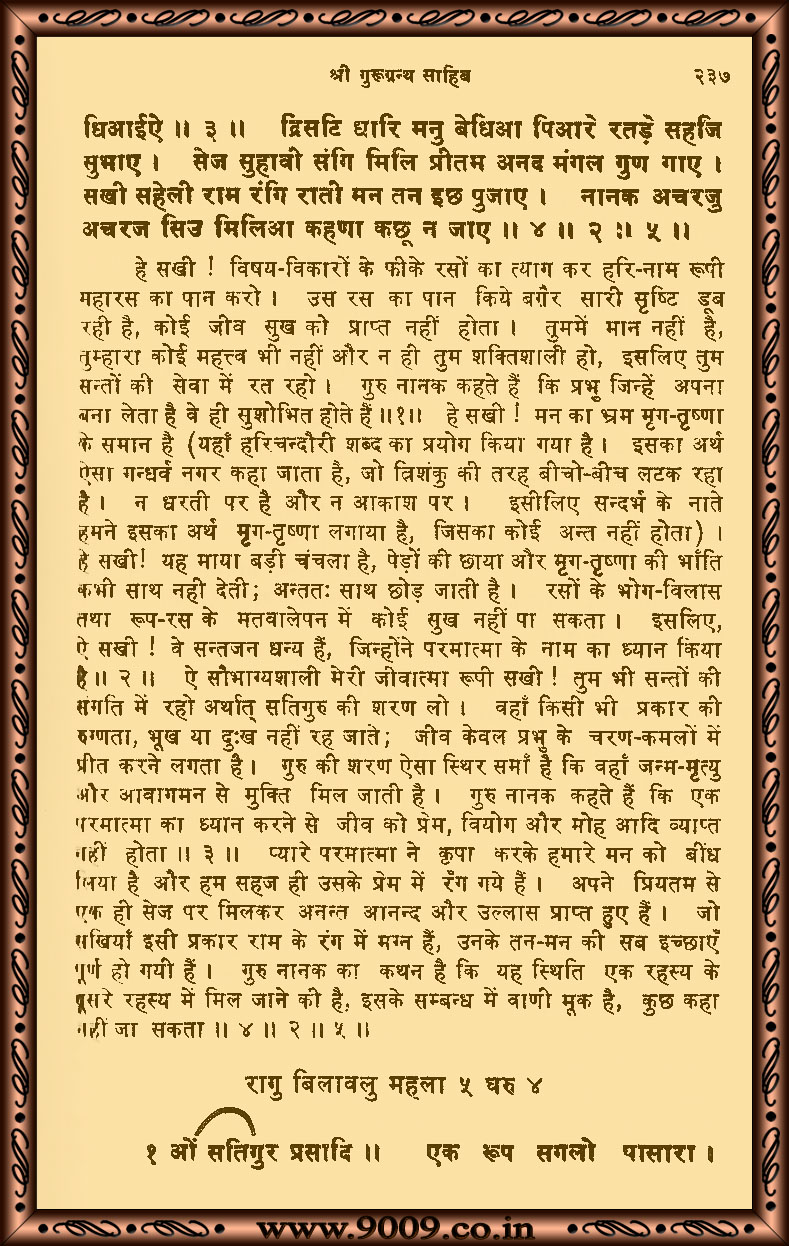 श्री गुरूग्रन्थ साहिब २३७
धिआईऐ ॥ ३ ॥ द्रिसटि धारि मनु बेधिआ पिआरे रतड़े सहजि
सुभाए । सेज सुहावी संगि मिलि प्रीतम अनद मंगल गुण गाए ।
सखी सहेली राम रंगि राती मन तन इछ पुजाए । नानक अचरजु
अचरज सिउ मिलिआ कहणा कछू न जाए ॥ ४ ॥ २ ॥ ५ ॥
हे सखी ! विषय-विकारों के फीके रसों का त्याग कर हरि-नाम रूपी
महारस का पान करो । उस रस का पान किये बग़ैर सारी सृष्टि डूब
रही है, कोई जीव सुख को प्राप्त नहीं होता । तुममें मान नहीं है,
तुम्हारा कोई महत्त्व भी नहीं और न ही तुम शक्तिशाली हो, इसलिए तुम
सन्तों की सेवा में रत रहो । गुरु नानक कहते हैं कि प्रभु जिन्हें अपना
बना लेता है वे ही सुशोभित होते हैं ॥१॥ हे सखी ! मन का भ्रम मृग-तृष्णा
के समान है (यहाँ हरिचन्दौरी शब्द का प्रयोग किया गया है । इसका अर्थ
ऐसा गन्धर्व नगर कहा जाता है, जो त्रिशंकु की तरह बीचो-बीच लटक रहा
है । न धरती पर है और न आकाश पर । इसीलिए सन्दर्भ के नाते
हमने इसका अर्थ मृग-तृष्णा लगाया है, जिसका कोई अन्त नहीं होता) ।
हे सखी! यह माया बड़ी चंचला है, पेड़ों की छाया और मृग-तृष्णा की भाँति
कभी साथ नही देती; अन्ततः साथ छोड़ जाती है । रसों के भोग-विलास
तथा रूप-रस के मतवालेपन में कोई सुख नहीं पा सकता । इसलिए,
ऐ सखी ! वे सन्तजन धन्य हैं, जिन्होंने परमात्मा के नाम का ध्यान किया
है ॥ २ ॥ ऐ सौभाग्यशाली मेरी जीवात्मा रूपी सखी ! तुम भी सन्तों की
संगति में रहो अर्थात् सतिगुरु की शरण लो । वहाँ किसी भी प्रकार की
रुग्णता, भूख या दुःख नहीं रह जाते; जीव केवल प्रभु के चरण-कमलों में
प्रीत करने लगता है । गुरु की शरण ऐसा स्थिर समाँ है कि वहाँ जन्म-मृत्यु
और आवागमन से मुक्ति मिल जाती है । गुरु नानक कहते हैं कि एक
परमात्मा का ध्यान करने से जीव को प्रेम, वियोग और मोह आदि व्याप्त
नहीं होता ॥ ३ ॥ प्यारे परमात्मा ने कृपा करके हमारे मन को बींध
लिया है और हम सहज ही उसके प्रेम में रँग गये हैं । अपने प्रियतम से
एक ही सेज पर मिलकर अनन्त आनन्द और उल्लास प्राप्त हुए हैं । जो
सखियाँ इसी प्रकार राम के रंग में मग्न हैं, उनके तन-मन की सब इच्छाएँ
पूर्ण हो गयी हैं । गुरु नानक का कथन है कि यह स्थिति एक रहस्य के
दूसरे रहस्य में मिल जाने की है, इसके सम्बन्ध में वाणी मूक है, कुछ कहा
नहीं जा सकता ॥ ४ ॥ २ ॥ ५ ॥
रागु बिलावलु महला ५ घरु ४
१ ओं सतिगुर प्रसादि ॥ एक रूप सगलो पासारा ।
www.9009.co.in